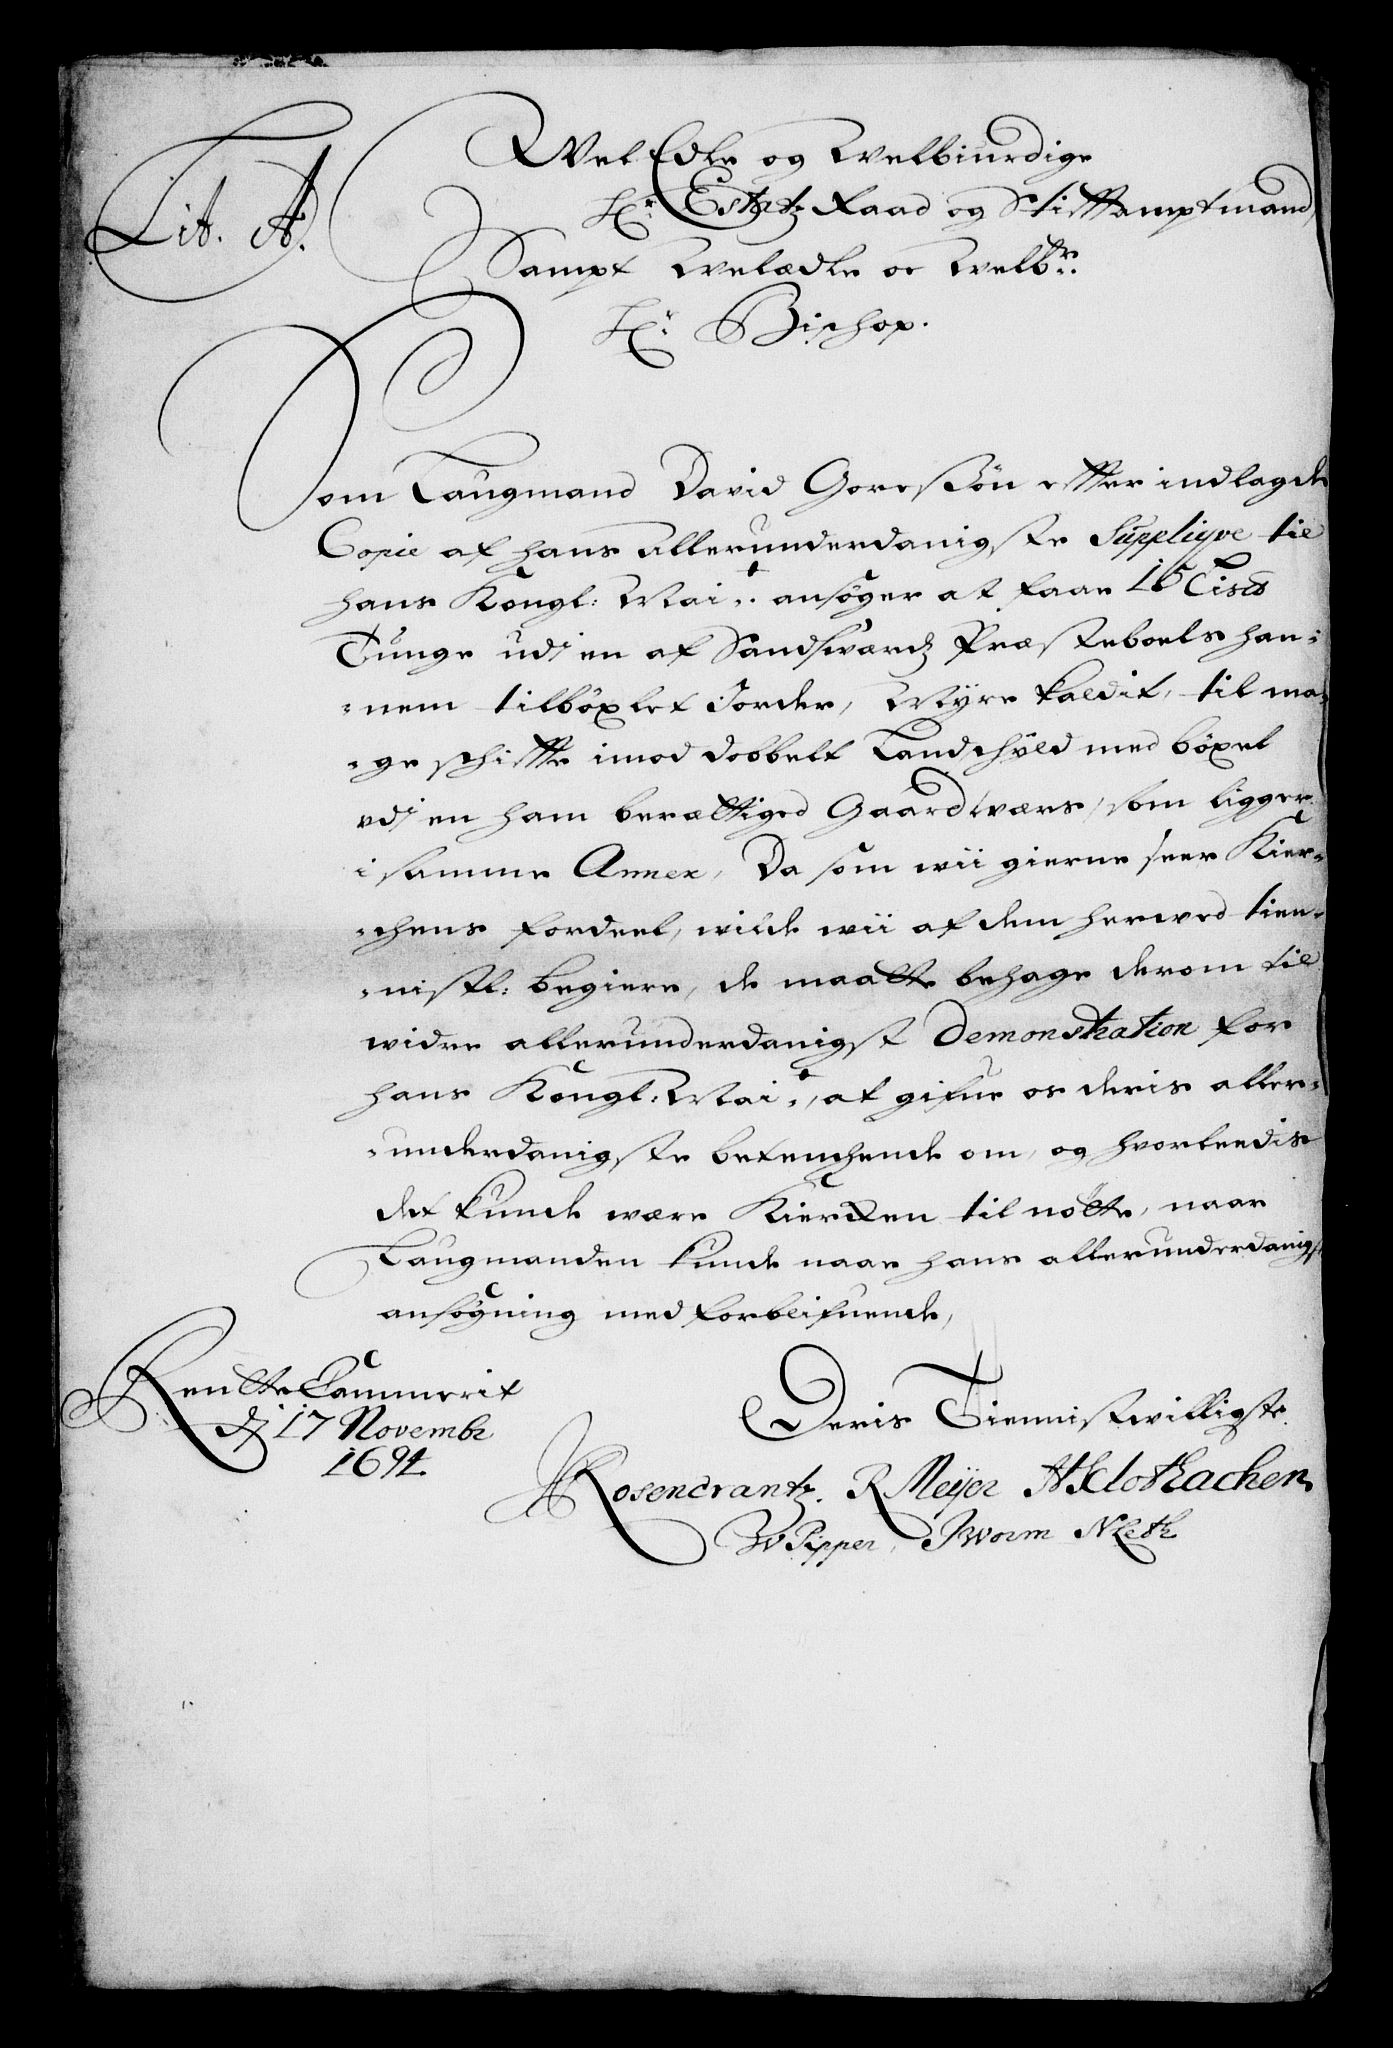 Lit. A.
Wel Edle og Welbiurdige
Hr. Estatz Raad og Stifftamptmand,
Sampt Welædle oc Welbr.
Hr. Bischop.
Som Laugmand David Goresøn effter indlagde
Copie af hans allerunderdanigste Suppliqve til
hans Kongl: Mait. ansøger at faae 16 Lisd
Tunge udj en af Sandswærdz Præsteboels han¬
¬nem tilbøxlet Jorder, Myre kaldit, til ma¬
¬ge schiffte imod dobbelt Landschyld med bøxel
udj en ham berættiged Gaard wærs, som ligger
i samme Annex, Da som wii gierne seer Kier¬
¬chens fordeel, wilde wii af dem herwed tien¬
¬nistl: begiere, de maatte behage derom til
widre allerunderdanigst Demonstration for
hans Kongl: Mait, at gifue os deris aller¬
¬underdanigste betenchende om, og hvorleedis
det kunde være Kiercken til nøtte, naar
Laugmanden kunde naae hans allerunderdanigst
ansøgning med forblifuende,
Rentte Cammerit
dj 17 Novembr
1694.
Deris Tiennistwilligste.
Rosencrantz. R Meÿer
W Pipper, J Worm